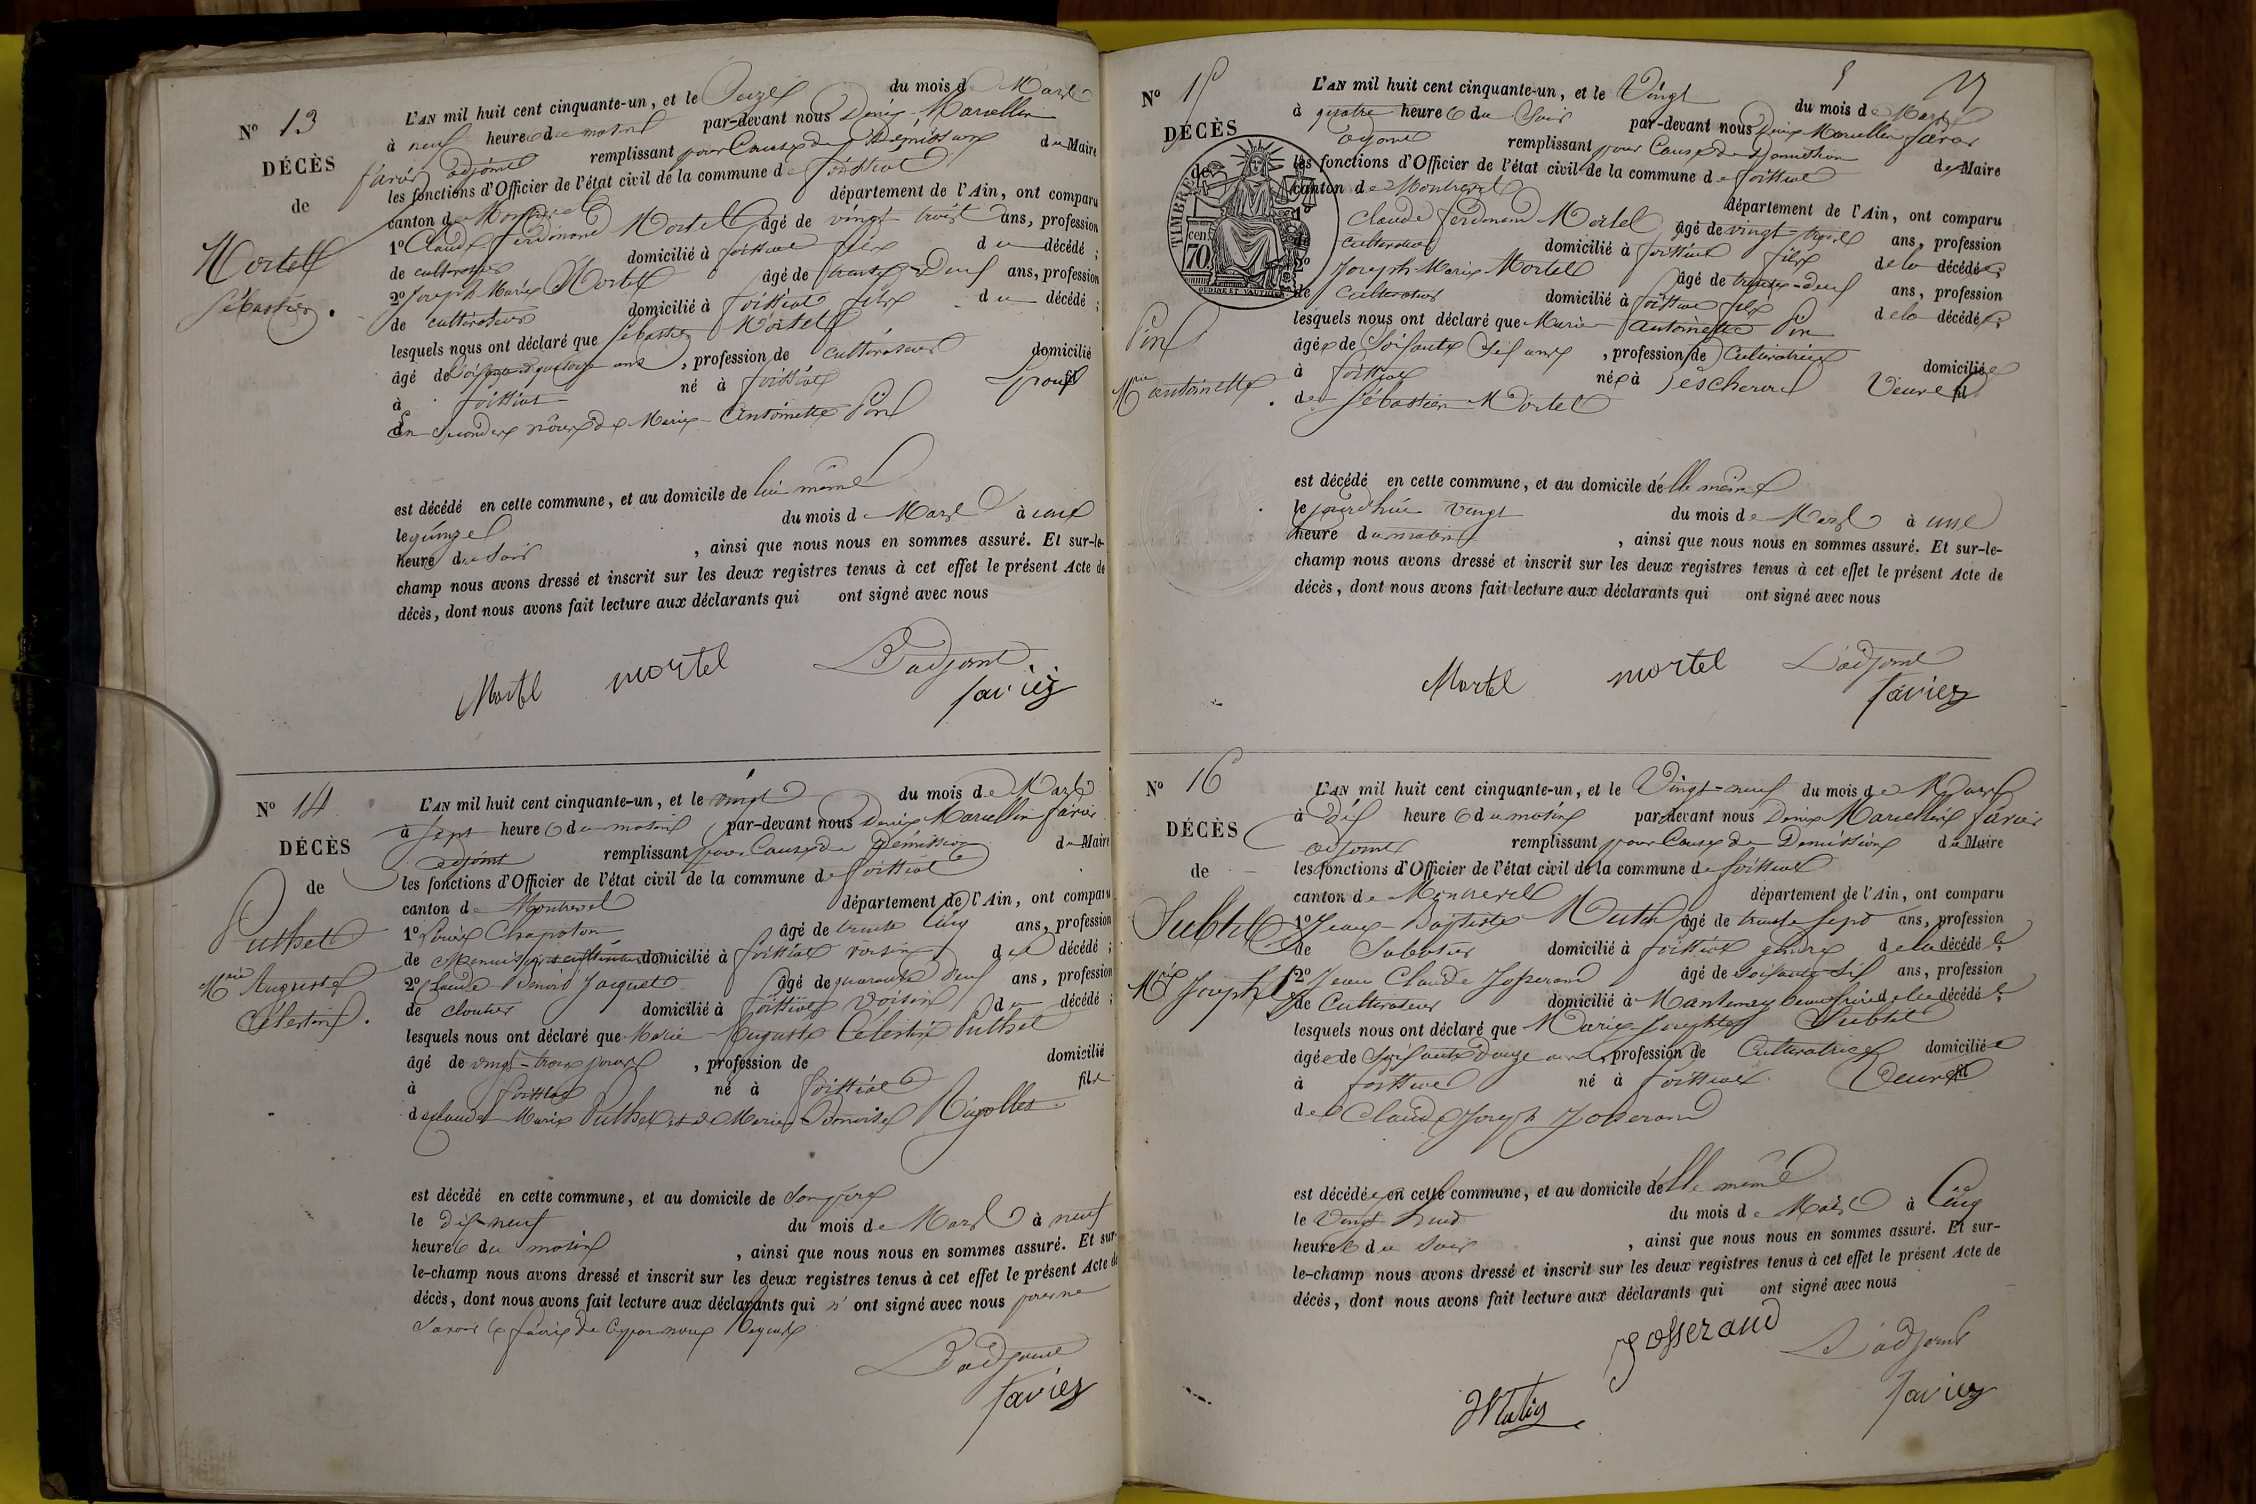 Nº 13
DÉCÈS
de
Mortel
Sébastien.
L'AN mil huit cent cinquante-un, et le Seize du mois de Mars
à neuf heures du matin par-devant nous Denis Marcellin
favier adjoint remplissant pour Cause de Démission du Maire
les fonctions d'Officier de l'état civil de la commune de foissiat
canton de Montrevel département de l'Ain, ont comparu
1º Claude ferdinand Mortel âgé de vingt trois ans, profession
de cultivateur domicilié à foissiat fils du décédé ;
2º Joseph Marie Mortel âgé de trente-deux ans, profession
de cultivateur domicilié à foissiat fils du décédé ;
lesquels nous ont déclaré que Sébastien Mortel
âgé de ans, profession de cultivateur domicilié
à foissiat né à foissiat Epoux
En Secondes nôces de Marie-Antoinette Pin
est décédé en cette commune, et au domicile de lui même
le quinze du mois de Mars à onze
heure du Soir, ainsi que nous nous en sommes assuré. Et sur-le-
champ nous avons dressé et inscrit sur les deux registres tenus à cet effet le présent Acte de
décès, dont nous avons fait lecture aux déclarants qui ont signé avec nous
Mortel mortel L'adjoint
favier
Nº 14
DÉCÈS
de
Puthet
Mrie Auguste
Célestine.
L'AN mil huit cent cinquante-un, et le vingt du mois de Mars
à Sept heures du matin par-devant nous Denis Marcellin favier
adjoint remplissant pour Cause de Démission du Maire
les fonctions d'Officier de l'état civil de la commune de foissiat
canton de Montrevel département de l'Ain, ont comparu
1º Louis Chapolon âgé de trente Cinq ans, profession
de domicilié à foissiat voisin du décédé ;
2º Claude Benoit Jacquet âgé de quarante deux ans, profession
de cloutier domicilié à foissiat voisin du décédé ;
lesquels nous ont déclaré que Marie Auguste Célestine Puthet
âgé de vingt-trois jours, profession de domicilié
à foissiat né à foissiat fille
de Claude Marie Puthet et de Marie Benoite
est décédé en cette commune, et au domicile de Son père
le dix-neuf du mois de Mars à neuf
heures du matin, ainsi que nous nous en sommes assuré. Et sur-
le-champ nous avons dressé et inscrit sur les deux registres tenus à cet effet le présent Acte de
décès, dont nous avons fait lecture aux déclarants qui n' ont signé avec nous pour ne
Savoir le faire de ce par nous Requis
L'adjoint
favier
Nº 15
DÉCÈS
de
TIMBRE
cen
70
OUDINE ET VAUTHIER
Pin
Mrie antoinette
L'AN mil huit cent cinquante-un, et le Vingt du mois de Mars
à quatre heures du Soir par-devant nous Denis Marcellin favier
adjoint remplissant pour Cause de Démission du Maire
les fonctions d'Officier de l'état civil de la commune de foissiat
canton de Montrevel département de l'Ain, ont comparu
Claude ferdinand Mortel âgé de vingt-trois ans, profession
cultivateur domicilié à foissiat fils de la décédée ;
2º Joseph-Marie Mortel âgé de trente-deux ans, profession
de Cultivateur domicilié à foissiat fils de la décédée ;
lesquels nous ont déclaré que Marie Antoinette Pin
âgée de Soixante Six ans, profession de Cultivatrice domiciliée
à foissiat née à Lescheroux Veuve
de Sébastien Mortel
est décédé en cette commune, et au domicile d'Elle même
le jourd'hui Vingt du mois de Mars à une
heure du matin, ainsi que nous nous en sommes assuré. Et sur-le-
champ nous avons dressé et inscrit sur les deux registres tenus à cet effet le présent Acte de
décès, dont nous avons fait lecture aux déclarants qui ont signé avec nous
Mortel mortel L'adjoint
favier
Nº 16
DÉCÈS
de
Subtil
Mie Josephte
L'AN mil huit cent cinquante-un, et le Vingt-neuf du mois de Mars
à Dix heures du matin par-devant nous Denis Marcellin favier
adjoint remplissant pour Cause de Démission du Maire
les fonctions d'Officier de l'état civil de la commune de foissiat
canton de Montrevel département de l'Ain, ont comparu
1º Jean-Baptiste âgé de trente sept ans, profession
de Sabotier domicilié à foissiat gendre de la décédée ;
2º Jean Claude Josserand âgé de Soixante Six ans, profession
de Cultivateur domicilié à Mantenay beaufrère de la décédée ;
lesquels nous ont déclaré que Marie Josephte Subtil
âgée de Soixante Douze ans, profession de Cultivatrice domiciliée
à foissiat né à foissiat Veuve
de Claude Joseph Josserand
est décédée en cette commune, et au domicile d'Elle même
le Vingt huit du mois de Mars à Cinq
heures du Soir, ainsi que nous nous en sommes assuré. Et sur-
le-champ nous avons dressé et inscrit sur les deux registres tenus à cet effet le présent Acte de
décès, dont nous avons fait lecture aux déclarants qui ont signé avec nous
Josserand L'adjoint
favier